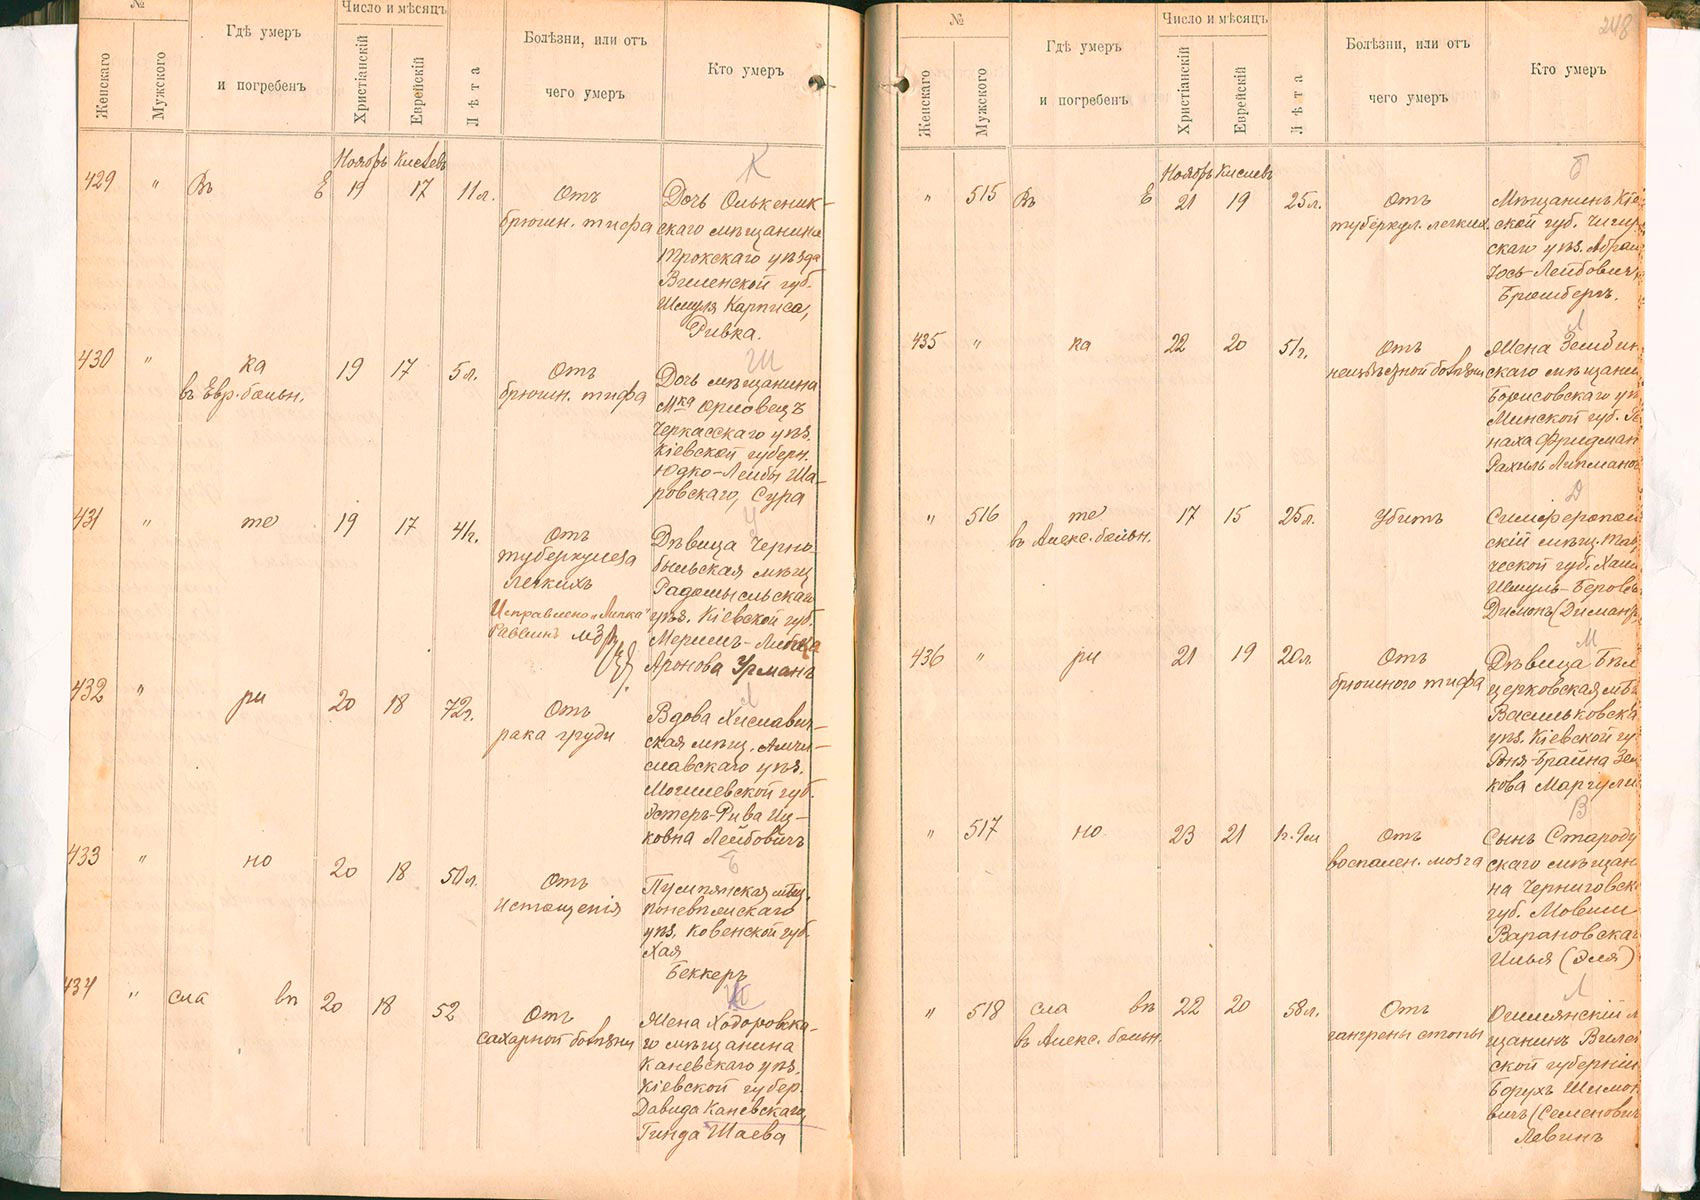 №
Женскаго
Мужского
Гдѣ умеръ
и погребенъ
Число и мѣсяцъ
Христіанскій
Еврейскій
Лѣта
Болѣзни, или отъ
чего умеръ
Кто умеръ
Ноябрь Кислевъ
К
429 " Въ Е 19 17 11 л.
Отъ
брюшн. тифа
Дочь Олькеник-
скаго мѣщанина
Трокскаго уѣзда
Виленской губ.
Шмуля Карписа,
Ривка.
Ш
430 " ка 19 17 5 л.
въ Евр. больн.
Отъ
брюшн. тифа
Дочь мѣщанина
М-ка Орловецъ
Черкасскаго уѣз.
Кіевской губерн.
Юдко-Лейбы Ша-
ровскаго, Сура
431 " те 19 17 41 г.
Отъ
туберкулеза
легкихъ
Исправлено „Липка"
Раввинъ
Дѣвица Черно-
быльская мѣщ.
Радомысльскаго
уѣз. Кіевской губ.
Аронова Урманъ
Л
432 " ри 20 18 72 г.
Отъ
рака груди
Вдова Хиславич-
ская мѣщ. Мсти-
славскаго уѣз.
Могилевской губ.
Эстеръ-Рива Иц-
ковна Лейбовичъ
Б
433 " но 20 18 50 л.
Отъ
истощенія
Пумпянская мѣщ.
Поневѣжскаго
уѣз. Ковенской губ.
Хая
Беккеръ
434 " сла вѣ 20 18 52
Отъ
сахарной болѣзни
Жена Ходоровска-
го мѣщанина
Каневскаго уѣз.
Кіевской губер.
Давида Каневскаго,
Гинда Шаева
248
№
Женскаго
Мужского
Гдѣ умеръ
и погребенъ
Число и мѣсяцъ
Христіанскій
Еврейскій
Лѣта
Болѣзни, или отъ
чего умеръ
Кто умеръ
Ноябрь Кислевъ
Б
" 515 Въ Е 21 19 25 л.
Отъ
туберкул. легкихъ
Мѣщанинъ Кіе
ской губ. Чигир
скаго уѣз. Абрам
Юсь-Лейбович
Бромбергъ.
Л
435 " ка 22 20 51 г.
Отъ
неизвѣстной болѣзни
Жена Зембин
скаго мѣщани
Борисовскаго уѣ
Минской губ. Ге
наха Фридман
Рахиль Липманов
Д
" 516 те 17 15 25 л.
въ Алекс. больн.
Убитъ
Симферопол
скій мѣщ. Тав
ческой губ. Хаи
Шмуль-Беровъ
Димонъ (Диманъ
М
436 " ри 21 19 20 л.
Отъ
брюшного тифа
Дѣвица Бѣл
церковская мѣ
Васильковска
уѣз. Кіевской гу
кова Маргули
В
" 517 но 23 21 1 г. 9 м
Отъ
воспален. мозга
Сынъ Староду
скаго мѣщан
на Черниговск
губ. Мовши
Варановскаг
Илья (Эля)
Л
" 518 сла вѣ 22 20 58 л.
въ Алекс. больн.
Отъ
гангрены стопы
Ошмянскій м
щанинъ Вилен
ской губерніи
Борухъ Шимон
вичъ (Семенович
Левинъ